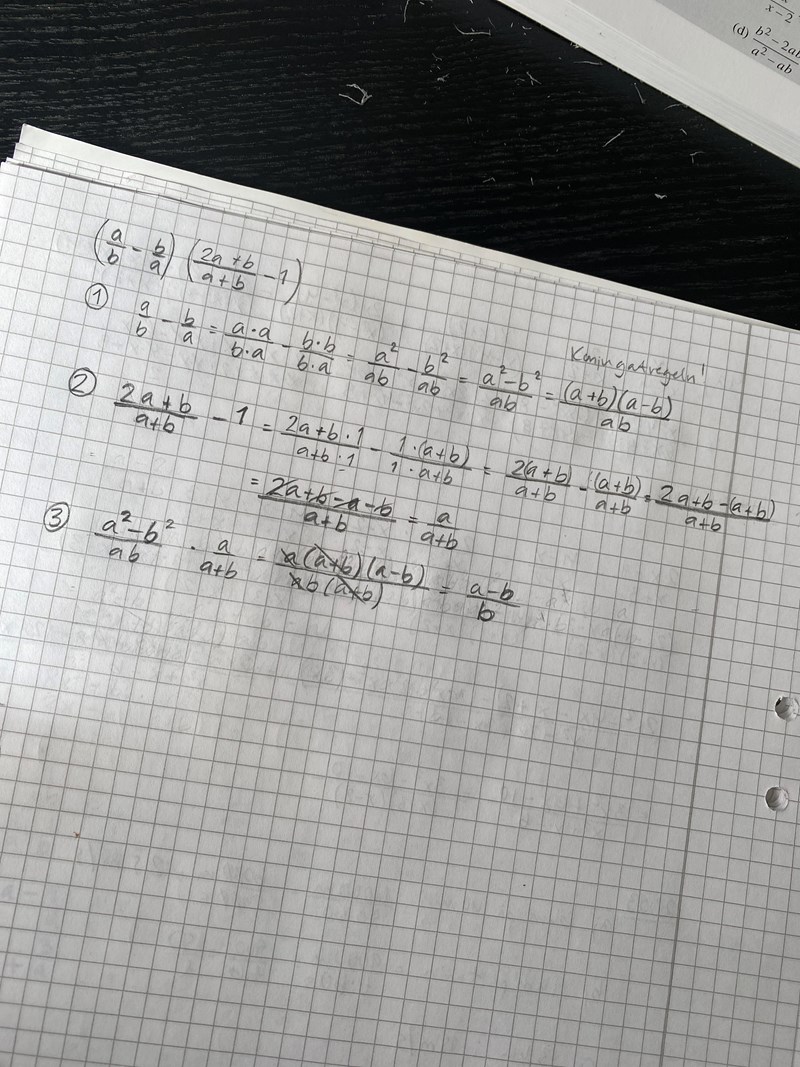 x-2
(d) b² - 2ab / a² - ab
(a/b - b/a) (2a+b/a+b - 1)
① a/b - b/a = a·a/b·a - b·b/b·a = a²/ab - b²/ab = a²-b²/ab = (a+b)(a-b)/ab
② 2a+b/a+b - 1 = 2a+b·1/a+b·1 - 1·(a+b)/1·a+b = 2(a+b)/a+b - (a+b)/a+b = 2a+b-(a+b)/a+b
= 2a+b-a-b/a+b = a/a+b
③ a²-b²/ab · a/a+b = a(a+b)(a-b)/ab(a+b) = a-b/b